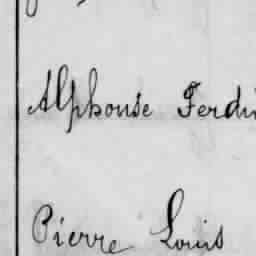 Alphonse Ferdi
Pierre Louis